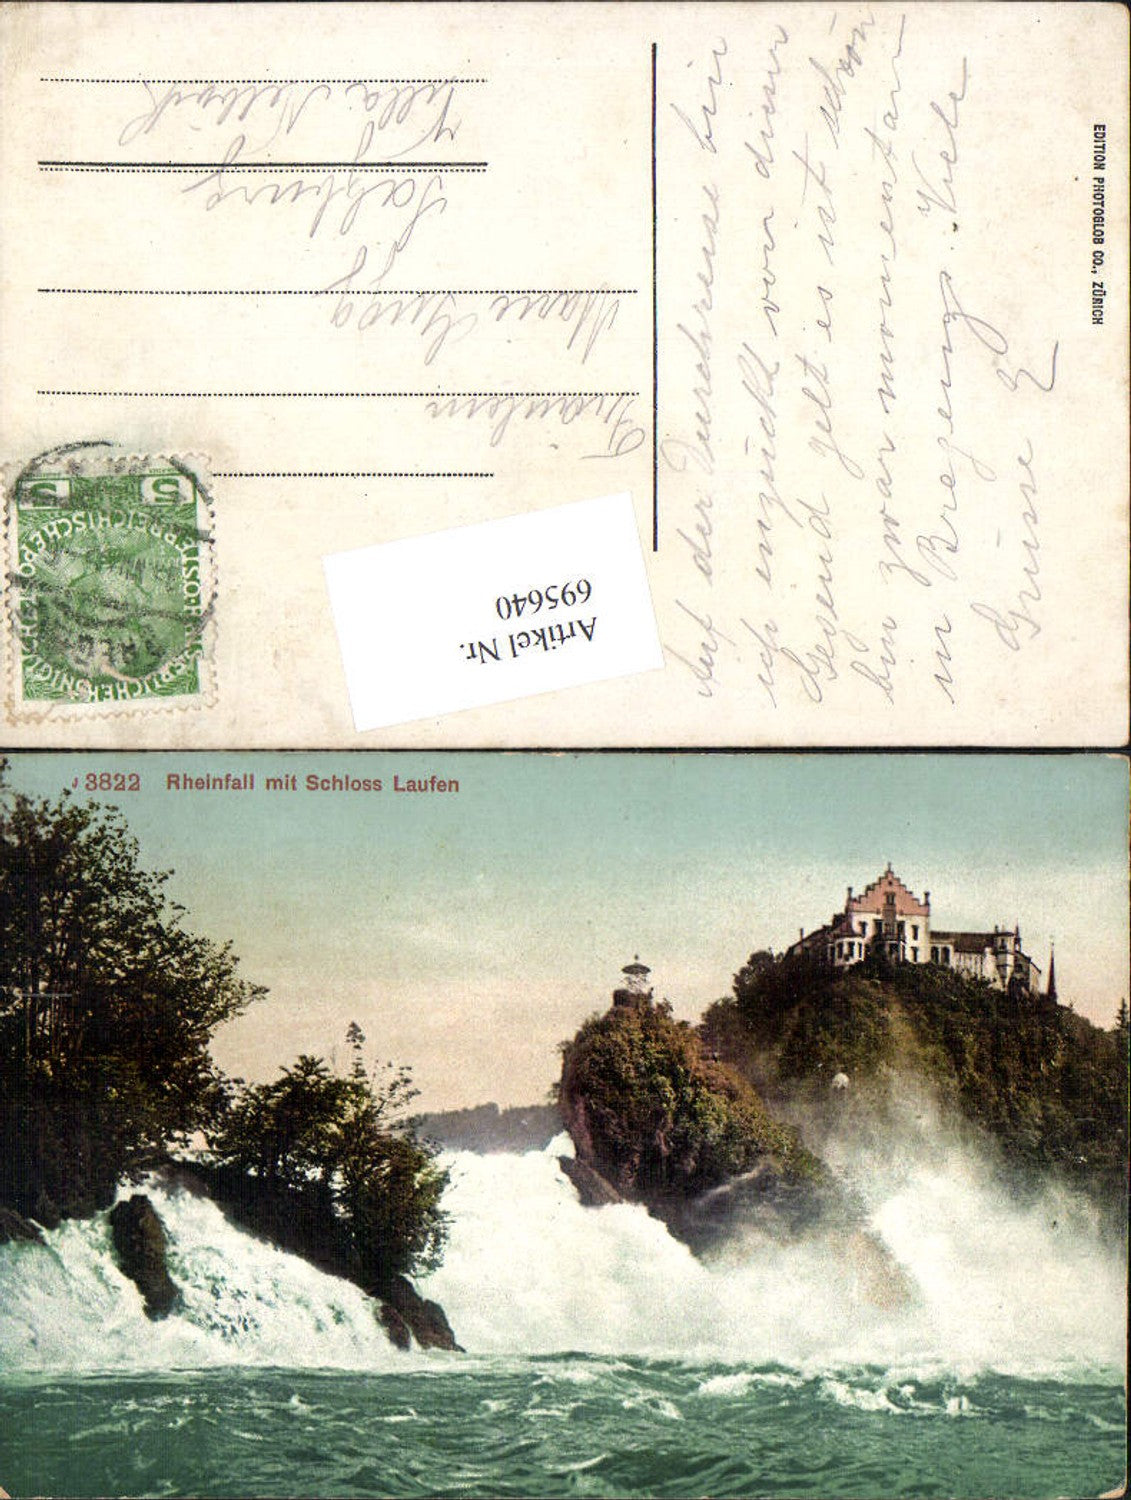 Auf der Durchreise bin
ich entzückt von dieser
Gegend jetzt es ist schön
bin zwar momentan
in Bregenz. Viele
Grüsse
EDITION PHOTOGLOB CO., ZÜRICH
Fräulein
Marie
Salzburg
Villa
5 5
Artikel Nr.
695640
J 3822 Rheinfall mit Schloss Laufen